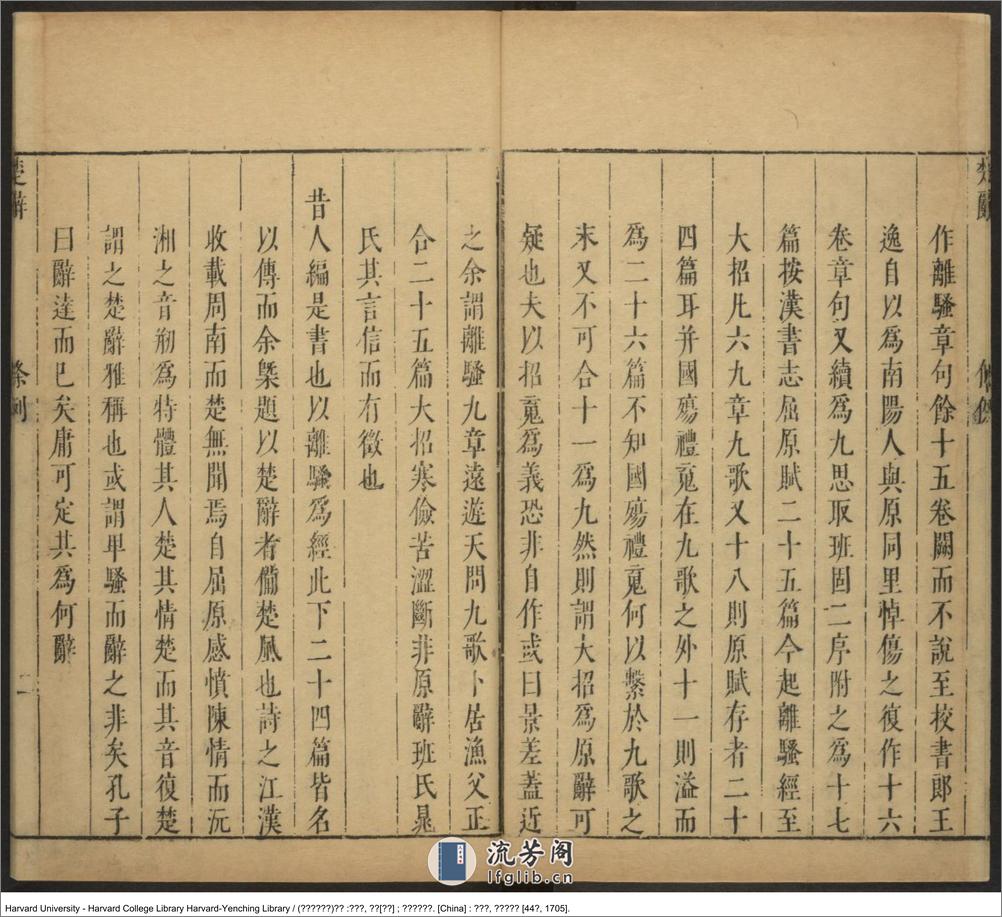 楚辭
條例
作離騷章句餘十五卷闕而不說至校書郎王
逸自以爲南陽人與原同里悼傷之復作十六
卷章句又續爲九思取班固二序附之爲十七
篇按漢書志屈原賦二十五篇今起離騷經至
大招凡六九章九歌又十八則原賦存者二十
四篇耳并國殤禮䰟在九歌之外十一則溢而
爲二十六篇不知國殤禮䰟何以繫於九歌之
末又不可合十一爲九然則謂大招爲原辭可
疑也夫以招䰟爲義恐非自作或曰景差蓋近
之余謂離騷九章遠遊天問九歌卜居漁父正
合二十五篇大招寒儉苦澀斷非原辭班氏晁
氏其言信而有徵也
昔人編是書也以離騷爲經此下二十四篇皆名
以傳而余槩題以楚辭者備楚風也詩之江漢
收載周南而楚無聞焉自屈原感憤陳情而沅
湘之音剏爲特體其人楚其情楚而其音復楚
謂之楚辭雅稱也或謂卑騷而辭之非矣孔子
曰辭達而已矣庸可定其爲何辭
楚辭
條例
二
流芳阁
lfglib.cn
Harvard University - Harvard College Library Harvard-Yenching Library / (??????)?? :???, ??[??] ; ??????. [China] : ???, ????? [44?, 1705].